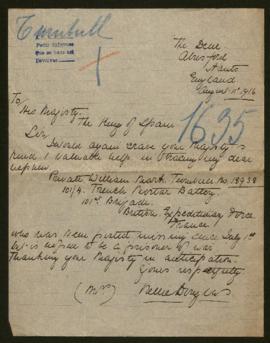 Turnbull
The Dene
Alresford
Hants
England
August 11th 1916
To
His Majesty
The King of Spain
1635
Sir
I would again crave your Majesty's
kind & valuable help in tracing my dear
nephew
Private William Turnbull No. 18938
101/4 Trench Mortar Battery
101st Brigade
British Expeditionary Force
France
who has been posted missing since July 1st
but is hoped to be a prisoner of war
Thanking your Majesty in anticipation
Yours respectfully
(Mrs) Nellie Douglas